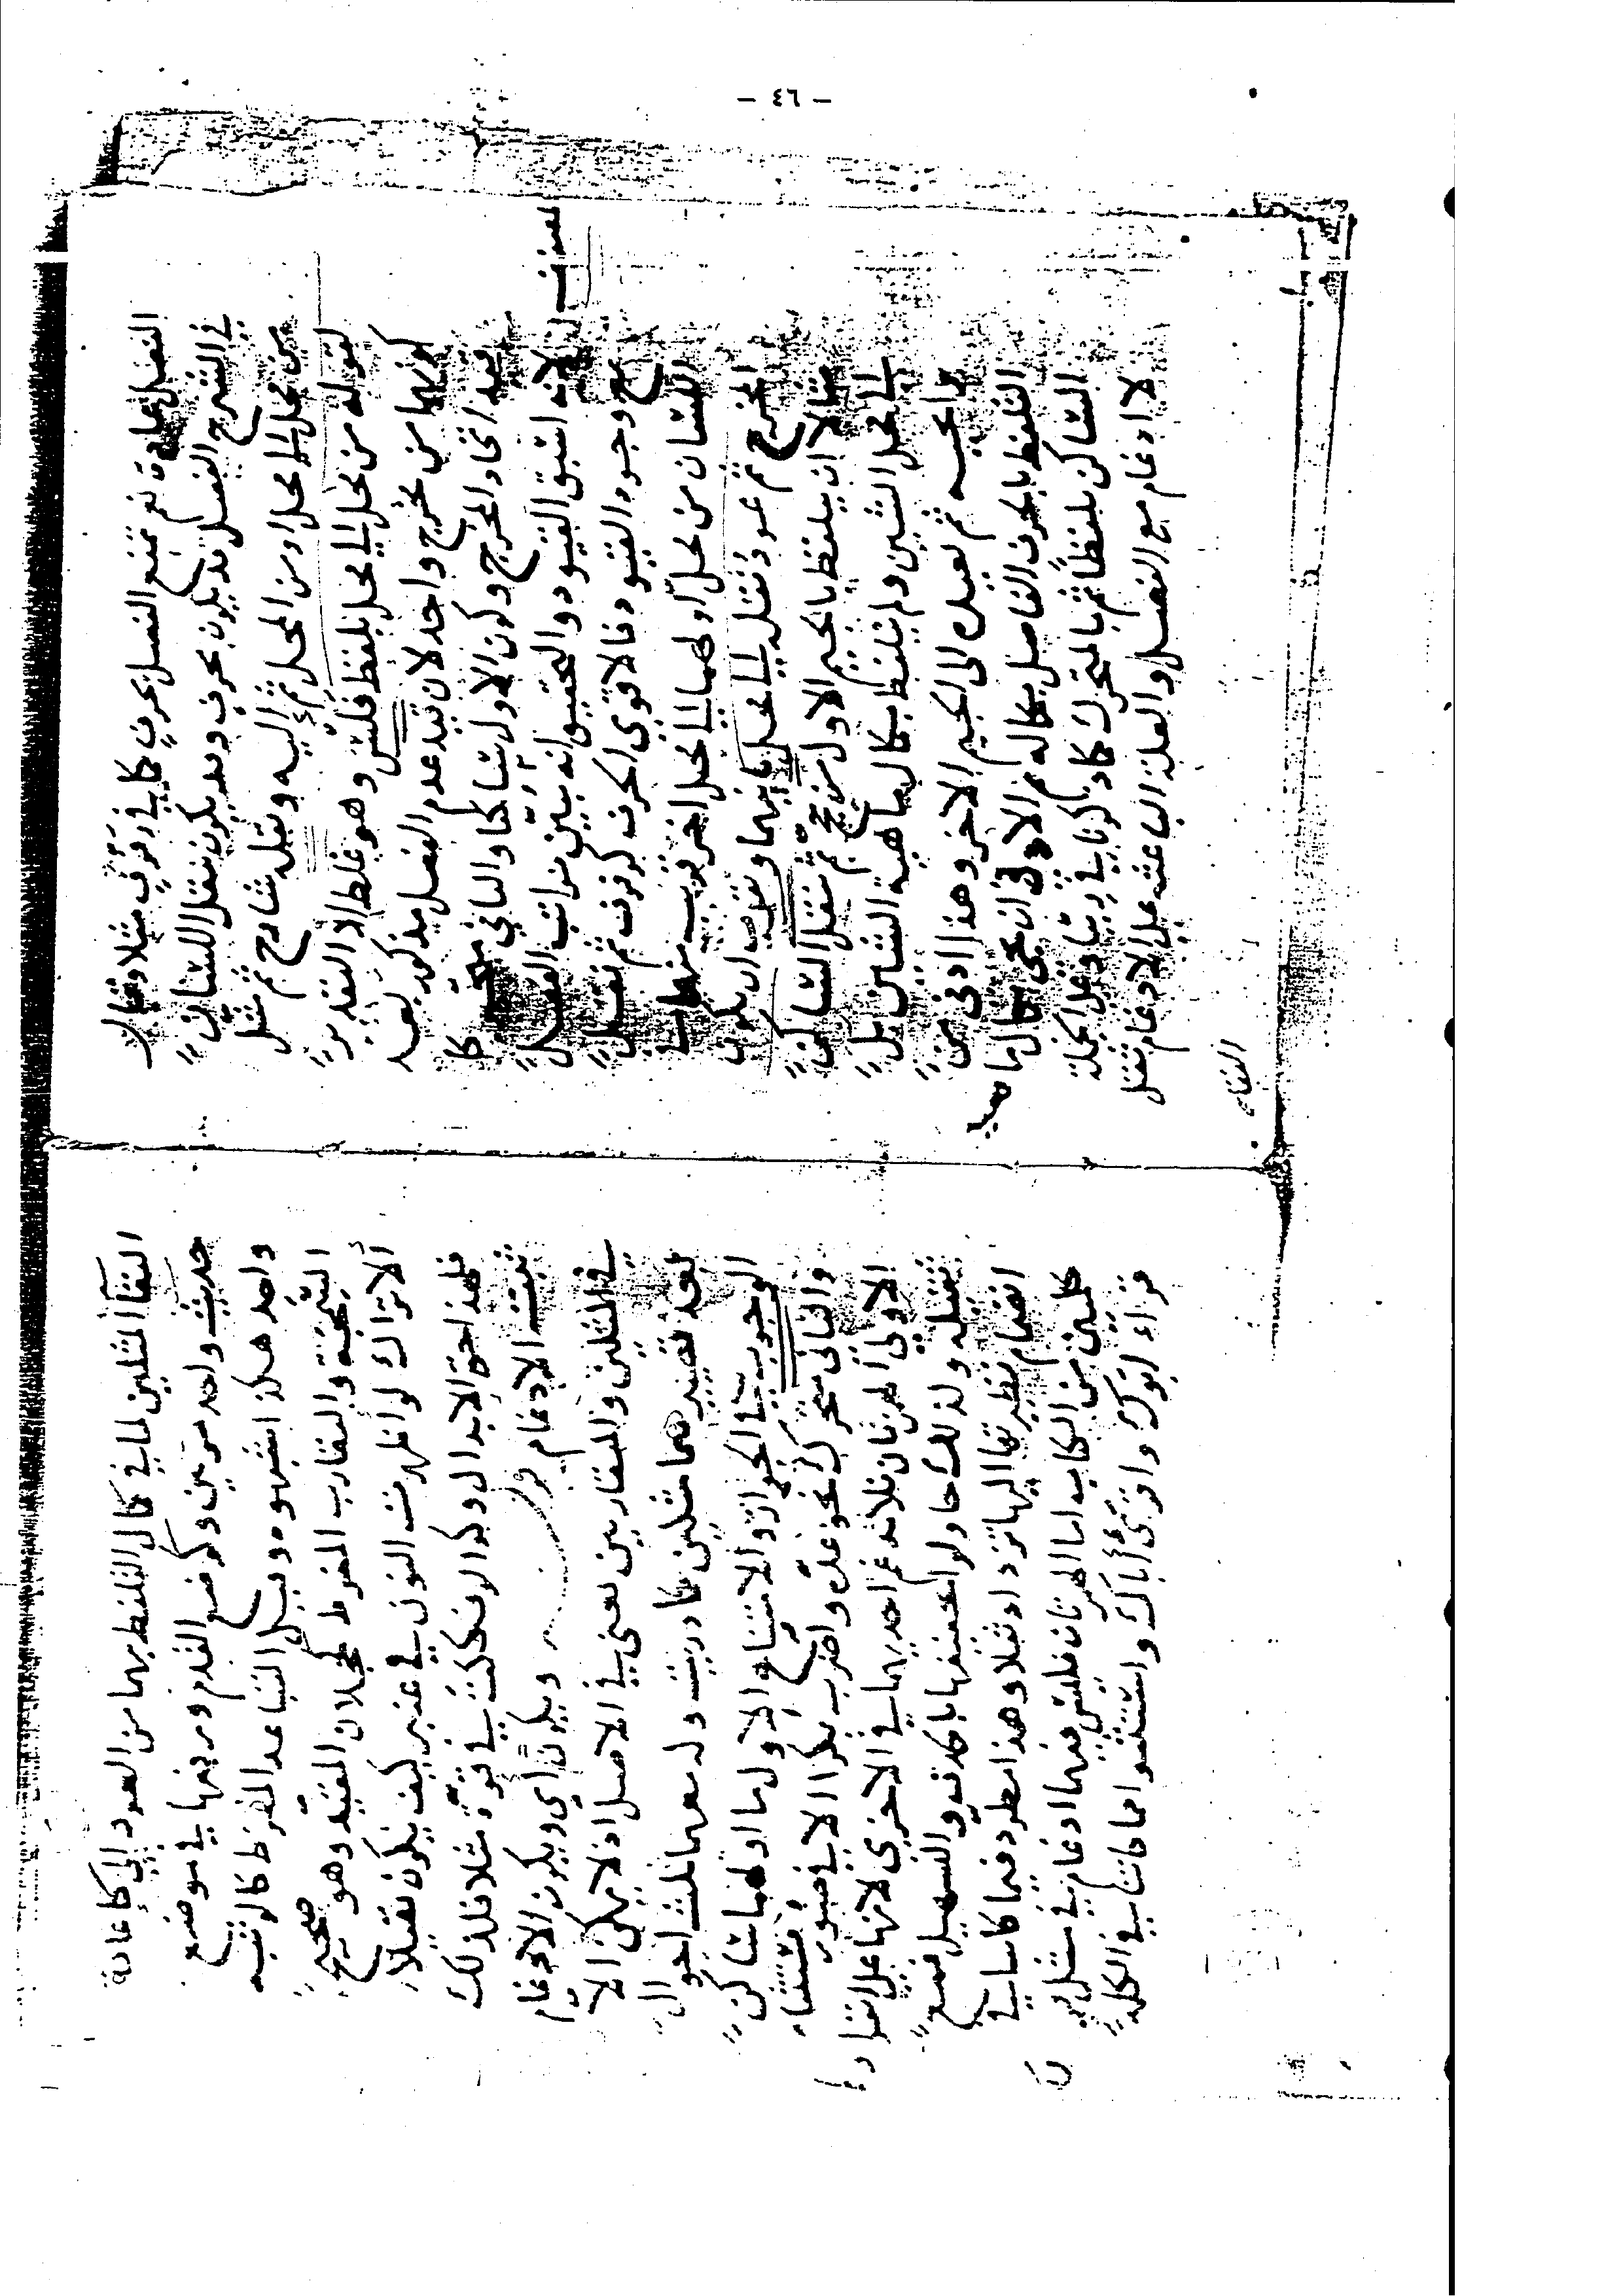 - ٤٦ -
الفصل عادة نعم تمنع الفصل بحرف كما في زفزف مثلا وقال
في الشرح الفصل قد يكون بحرف وقد يكون بنقل اللسان
من محل الى محل او من المحل ثم اليه ونقله شارح ثم مثل
لقوله من محل الى محل بلفظ فلس وهو غلط اذ التقدير
كونهما من مخرج واحد لان قيد عدم الفصل مذكور بعد
قيد اتحاد المخرج وكون الاول ساكنا والثاني متحركا
لانه اتبق القيود والتحقيق انه بين مراتب الفصل
مع وجود القيود فالاقوى الحرف كزفزف ثم نقل
اللسان من محل اولهما الى محل اخر قريب منهما في
المخرج ثم عود نقله الى محل ثانيهما ونقص ان يكون
مثالا ان يلفظ بالجيم الاول من حجج ثم تنقل الساكن
الى محل الشين ولم تلفظ بكمال ماهية الشين بل
ما يجب ثم تعيده الى الجيم الاخر وهذا ادنى من
التلفظ بالحرف الفاصل بكماله ثم الادنى ان يجئ بكمال ماهية
الساكن تلفظا ثم بالمتحرك كما ذكرنا في ريّا وعلى الجملة
لا ادغام مع الفصل والعلة الباعثة على الادغام ثقل
التقاء
التقاء المثلين لما في كمال التلفظ بهما من العود الى كاعادة
حديث واحد مرتين وكوضع القدم ورفعها في موضع
واحد هكذا شبهوه وقيل التباعد المفرط كالوثبة
البتحتة والتقارب المفرط كحجلان المقيد وهو صحيح
ألا تراك لو اظهرت النون في عنبر كيف يكون ثقيلا
فلهذا حق الابدال وكذا لو فككت في قوة مثلا فلذلك
ثبت الادغام قوله ويكون اي ويكون الادغام
في المثلين والمتقاربين يعني في الاصل اذ لا يمكن الا
بعد تصييرهما مثلين كما دريت وله معهما ثلث احوال
الوجوب والجواز والامتناع الاول ما اولهما ساكن
والثاني متحرك نحو علّ واضرب بكرا الا في صور مستثناة
الاولى الهمزتان فلا تدغم احديهما في الاخرى لانها على انفرادها
ثقيلة ولذلك حاولوا تخفيفها بالحذف والتسهيل فمع
انضمام نظيرتها اليها تزداد ثقلا وهذا مطرد فيما كانتا في
كلمتين من الكتاب اما الهمزتان فليس فيهما ادغام في مثل
قراء ابوك واقرئ اباك واستثنوا مما كانتا في الكلمة